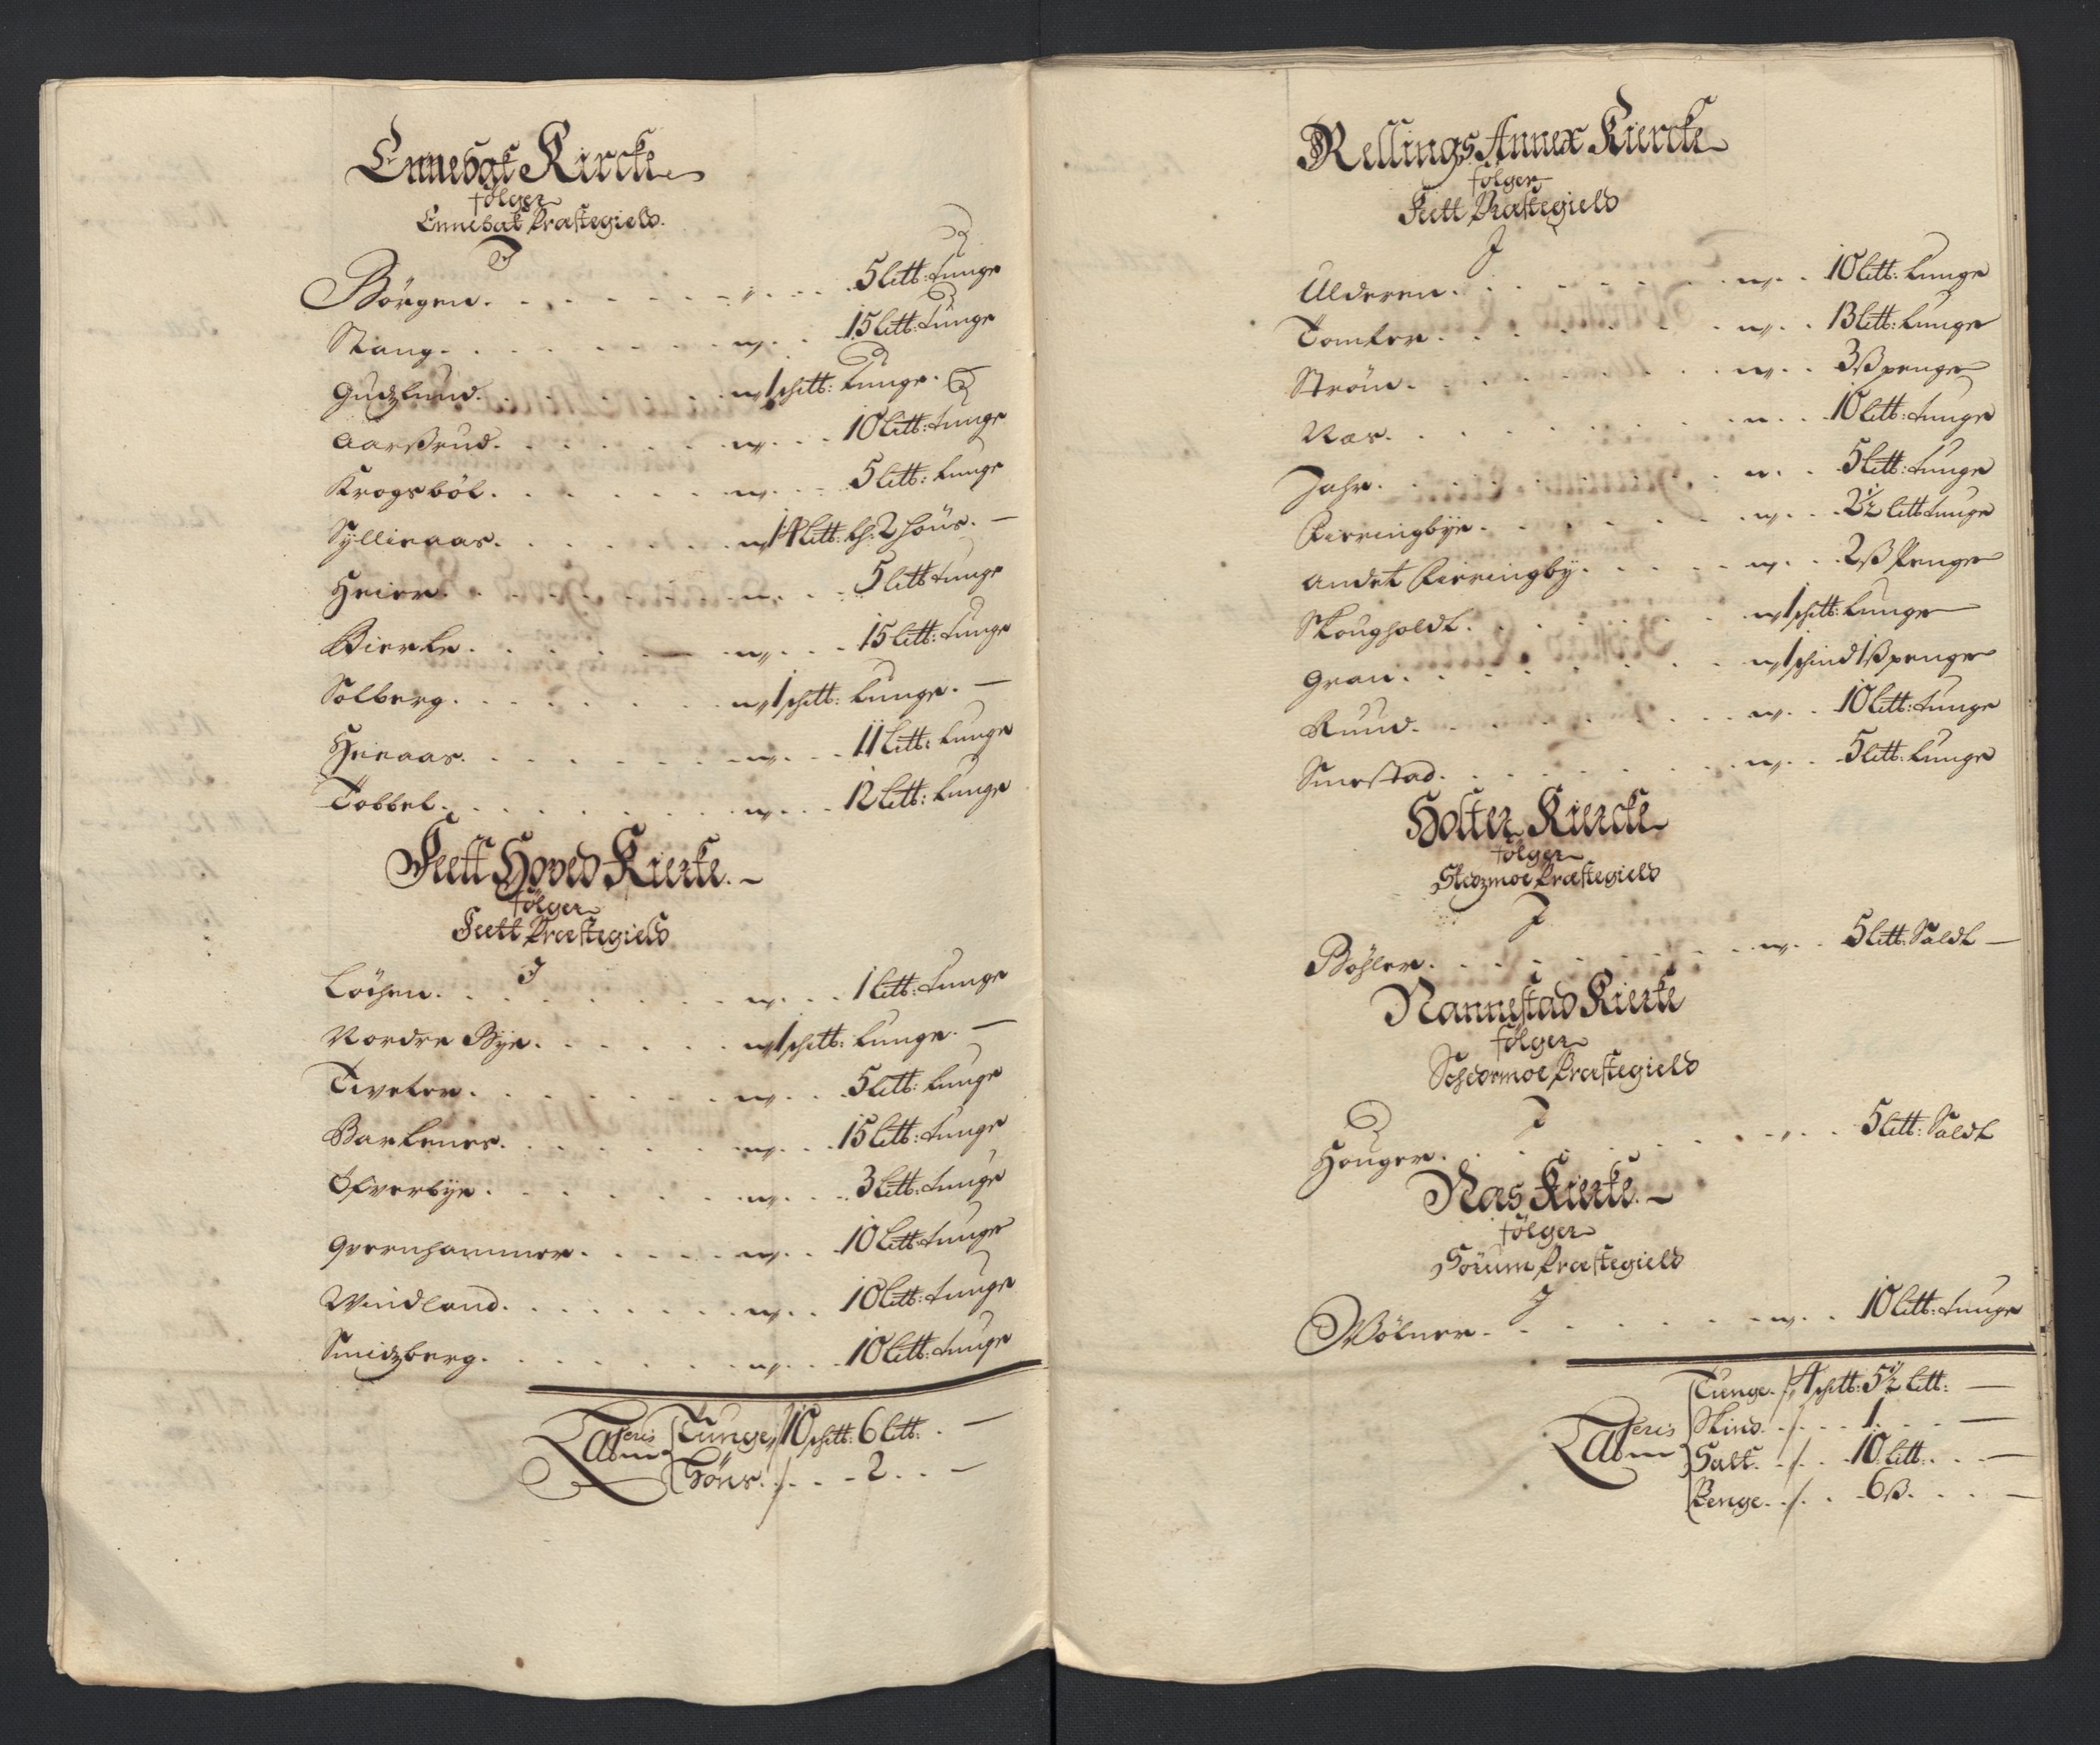 Ennebak Kircke
følger
Ennebak Præstegield.
I
Börgen. . . . . . . . . 5 litt: tunge
Stang. . . . . . . . . 15 litt: tunge
Gudzlund. . . . . . . 1 schitt: tunge. —
Aarssrud. . . . . . . 10 litt: tunge
Krogsböl. . . . . . . 5 litt: tunge
Syllieaas. . . . . . . 14 litt: th: 2 höns. —
Heier. . . . . . . . . 5 litt tunge
Bierke. . . . . . . . 15 litt: tunge
Solberg. . . . . . . . 1 schitt: tunge. —
Heeaas. . . . . . . . 11 litt: tunge
Tobbel. . . . . . . . 12 litt: tunge
Feett Hoved Kierke. —
følger
Feett Præstegield
I
Löchen. . . . . . . . 1 litt: tunge
Nordre Bye. . . . . . 1 schitt: tunge. —
Tveter. . . . . . . . 5 litt: tunge
Barkenes. . . . . . . 15 litt: tunge
Öfverbye. . . . . . . 3 litt: tunge
Qvernhammer. . . . . 10 litt: tunge
Windland. . . . . . . 10 litt: tunge
Smidzberg. . . . . . . 10 litt: tunge
Lateris
Tunge 10 schitt: 6 litt: . —
Höns. . . . 2 . . —
Rellings Annex Kiercke
følger
Feett Præstegield
I
Ulderen. . . . . . . . 10 litt: tunge
Tomter. . . . . . . . 13 litt: tunge
Ström. . . . . . . . . 3 ß penge
Næs. . . . . . . . . . 10 litt: tunge
Jahr. . . . . . . . . . 5 litt: tunge
Kierringbye. . . . . . 2½ litt tunge
Andet Kierringby. . . . . 2 ß Penge
Skougholdt. . . . . . 1 schitt: tunge
Gran. . . . . . . . . 1 schind 1 ß penge
Ruud. . . . . . . . . 10 litt: tunge
Smestad. . . . . . . . 5 litt: tunge
Holter Kiercke
følger
Skedzmoe Præstegield
I
Böhler. . . . . . . . . 5 litt: Saldt —
Nannestad Kierke
følger
Schedsmoe Præstegield
I
Houger. . . . . . . . 5 litt: Saldt
Næs Kierke. —
følger
Sörum Præstegield
I
Mölner. . . . . . . . 10 litt: tunge
Lateris
Tunge. 4 schitt: 5½ litt: —
Skind. . . . 1. . . . —
Salt. . . . 10 litt: . . —
Penge. . . . 6 ß. . . . —